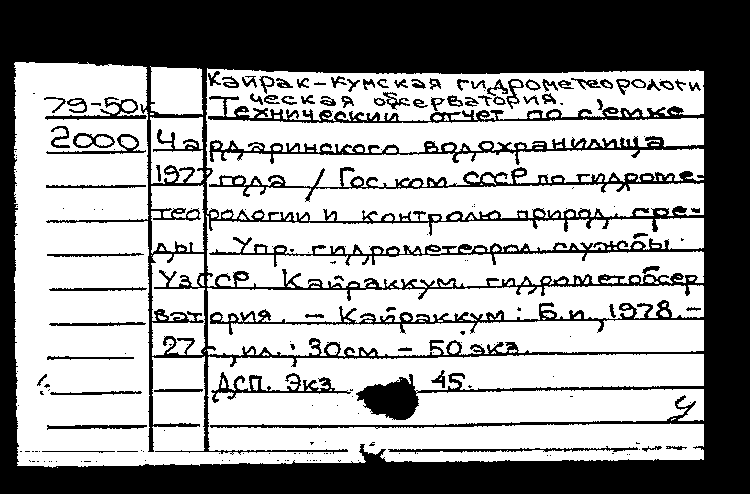 Кайрак-кумская гидрометеорологи-
ческая обсерватория.
79-50к Технический отчет по съемке
2000 Чардаринского водохранилища
1977 года / Гос. ком. СССР по гидроме-
теорологии и контролю природ. сре-
ды. Упр. гидрометеорол. службы
УзССР. Кайраккум. гидрометобсер
ватория. — Кайраккум: Б.и., 1978. —
27 с., ил.; 30см. — 50 экз.
ДСП. Экз. 45.
У